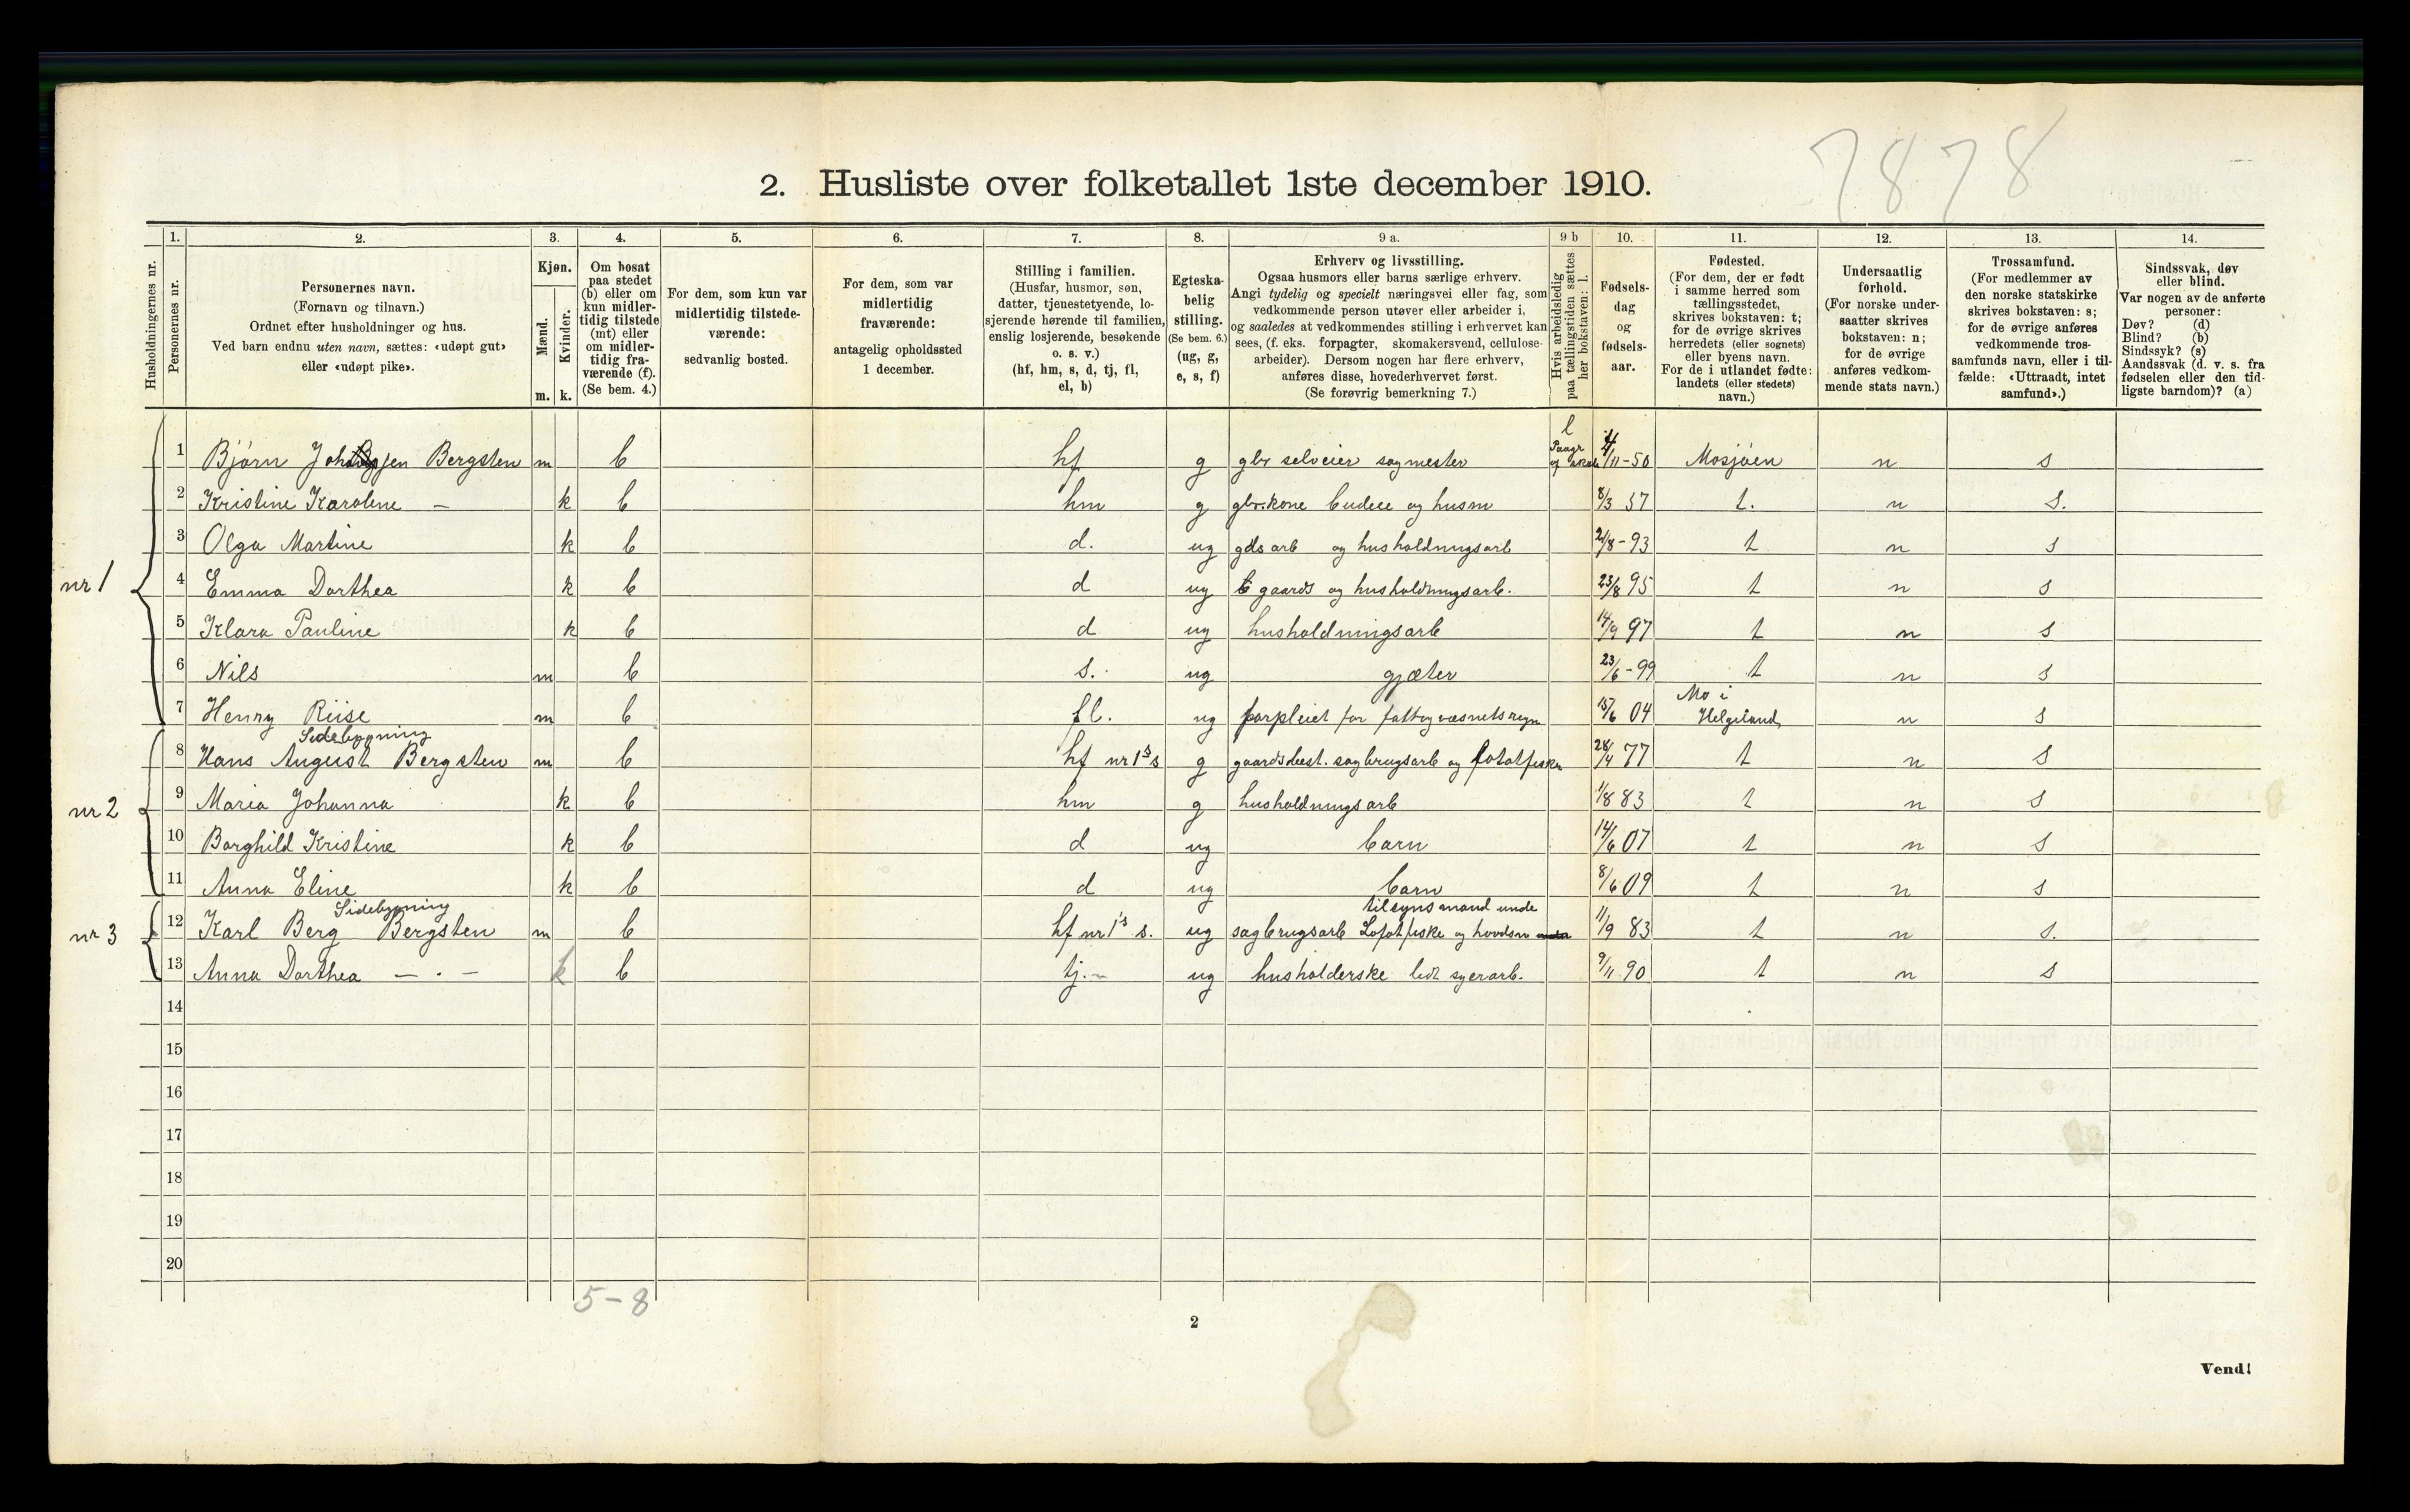 7878
2. Husliste over folketallet 1ste december 1910.
1. 2. 3. 4. 5. 6. 7. 8. 9 a. 9 b 10. 11. 12. 13. 14.
Husholdningernes nr.
Personernes nr.
Personernes navn.
(Fornavn og tilnavn.)
Ordnet efter husholdninger og hus.
Ved barn endnu uten navn, sættes: «udøpt gut»
eller «udøpt pike».
Kjøn.
Mænd.
Kvinder.
m. k.
Om bosat
paa stedet
(b) eller om
kun midler-
tidig tilstede
(mt) eller
om midler-
tidig fra-
værende (f).
(Se bem. 4.)
For dem, som kun var
midlertidig tilstede-
værende:
sedvanlig bosted.
For dem, som var
midlertidig
fraværende:
antagelig opholdssted
1 december.
Stilling i familien.
(Husfar, husmor, søn,
datter, tjenestetyende, lo-
sjerende hørende til familien,
enslig losjerende, besøkende
o. s. v.)
(hf, hm, s, d, tj, fl,
el, b)
Egteska-
belig
stilling.
(Se bem. 6.)
(ug, g,
e, s, f)
Erhverv og livsstilling.
Ogsaa husmors eller barns særlige erhverv.
Angi tydelig og specielt næringsvei eller fag, som
vedkommende person utøver eller arbeider i,
og saaledes at vedkommendes stilling i erhvervet kan
sees, (f. eks. forpagter, skomakersvend, cellulose-
arbeider). Dersom nogen har flere erhverv,
anføres disse, hovederhvervet først.
(Se forøvrig bemerkning 7.)
Hvis arbeidsledig
paa tællingstiden sættes
her bokstaven: l.
Fødsels-
dag
og
fødsels-
aar.
Fødested.
(For dem, der er født
i samme herred som
tællingsstedet,
skrives bokstaven: t;
for de øvrige skrives
herredets (eller sognets)
eller byens navn.
For de i utlandet fødte:
landets (eller stedets)
navn.)
Undersaatlig
forhold.
(For norske under-
saatter skrives
bokstaven: n;
for de øvrige
anføres vedkom-
mende stats navn.)
Trossamfund.
(For medlemmer av
den norske statskirke
skrives bokstaven: s;
for de øvrige anføres
vedkommende tros-
samfunds navn, eller i til-
fælde: «Uttraadt, intet
samfund».)
Sindssvak, døv
eller blind.
Var nogen av de anførte
personer:
Døv? (d)
Blind? (b)
Sindssyk? (s)
Aandssvak (d. v. s. fra
fødselen eller den tid-
ligste barndom)? (a)
l
1 Bjørn Bergsten m b hf g gbr selveier sagmester 4/11-50 Mosjøen n s
2 Kristine Karoline — k b hm g gbr.kone budeie og husm 8/3 57 t. n s.
3 Olga Martine k b d. ug gds arb og husholdningsarb 21/8-93 t n s
nr 1
4 Emma Dorthea k b d ug gaards og husholdningsarb. 23/8 95 t n s
5 Klara Pauline k b d ug husholdningsarb 14/9 97 t n s
6 Nils m b s. ug gjæter 23/6-99 t n s
Mo i
7 Henry Riise m b fl. ug forpleiet for 15/6 04 Helgeland n s
Sidebygning
8 Hans August Bergsten m b hf nr 1s s g sagbrugsarb og 28/4 77 t n s
nr 2
9 Maria Johanna k b hm g husholdningsarb 1/8 83 t n s
10 Borghild Kristine k b d ug barn 14/6 07 t n s
11 Anna Eline k b d ug barn 8/6 09 t n s
Sidebygning tilsynsmand unde
nr 3
12 Karl Berg Bergsten m b hf nr 1's s. ug sagbrugsarb Lofotfiske og 11/9 83 t n s.
13 Anna Dorthea — . — k b tj. ug husholderske lidt syerarb. 9/11 90 t n s
14
15
16
17
18
19
20
5-8
2
Vend!